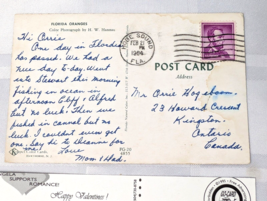 FLORIDA ORANGES
Color Photograph by H. W. Hannau
Hi Orrie
One day in Florida
has passed. We had a
nice day to-day. Went
Stewart the morning
fishing in ocean in
afternoon Cliff & Alfred
but no luck. Then we
fished in cannel but no
luck. I wouldnt even get
one. Say hi to Eleanor for
me! Love
Mom & Dad.
HOBE SOUND
FEB
FLA.
POST CARD
Address
Mr Orrie Hogeboom
23 Howard Crescent
Kingston
Ontario
Canada.
SUPPORTS
ROMANCE!
Happy Valentines!